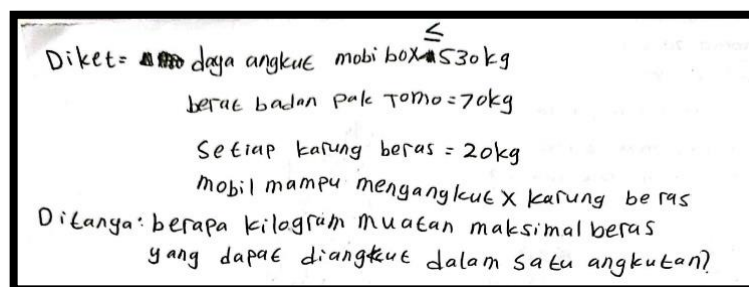 Diket= daya angkut mobi box ≤ 530kg
berat badan pak Tomo = 70kg
Setiap karung beras = 20kg
mobil mampu mengangkut x karung beras
Ditanya: berapa kilogram muatan maksimal beras
yang dapat diangkut dalam satu angkutan?